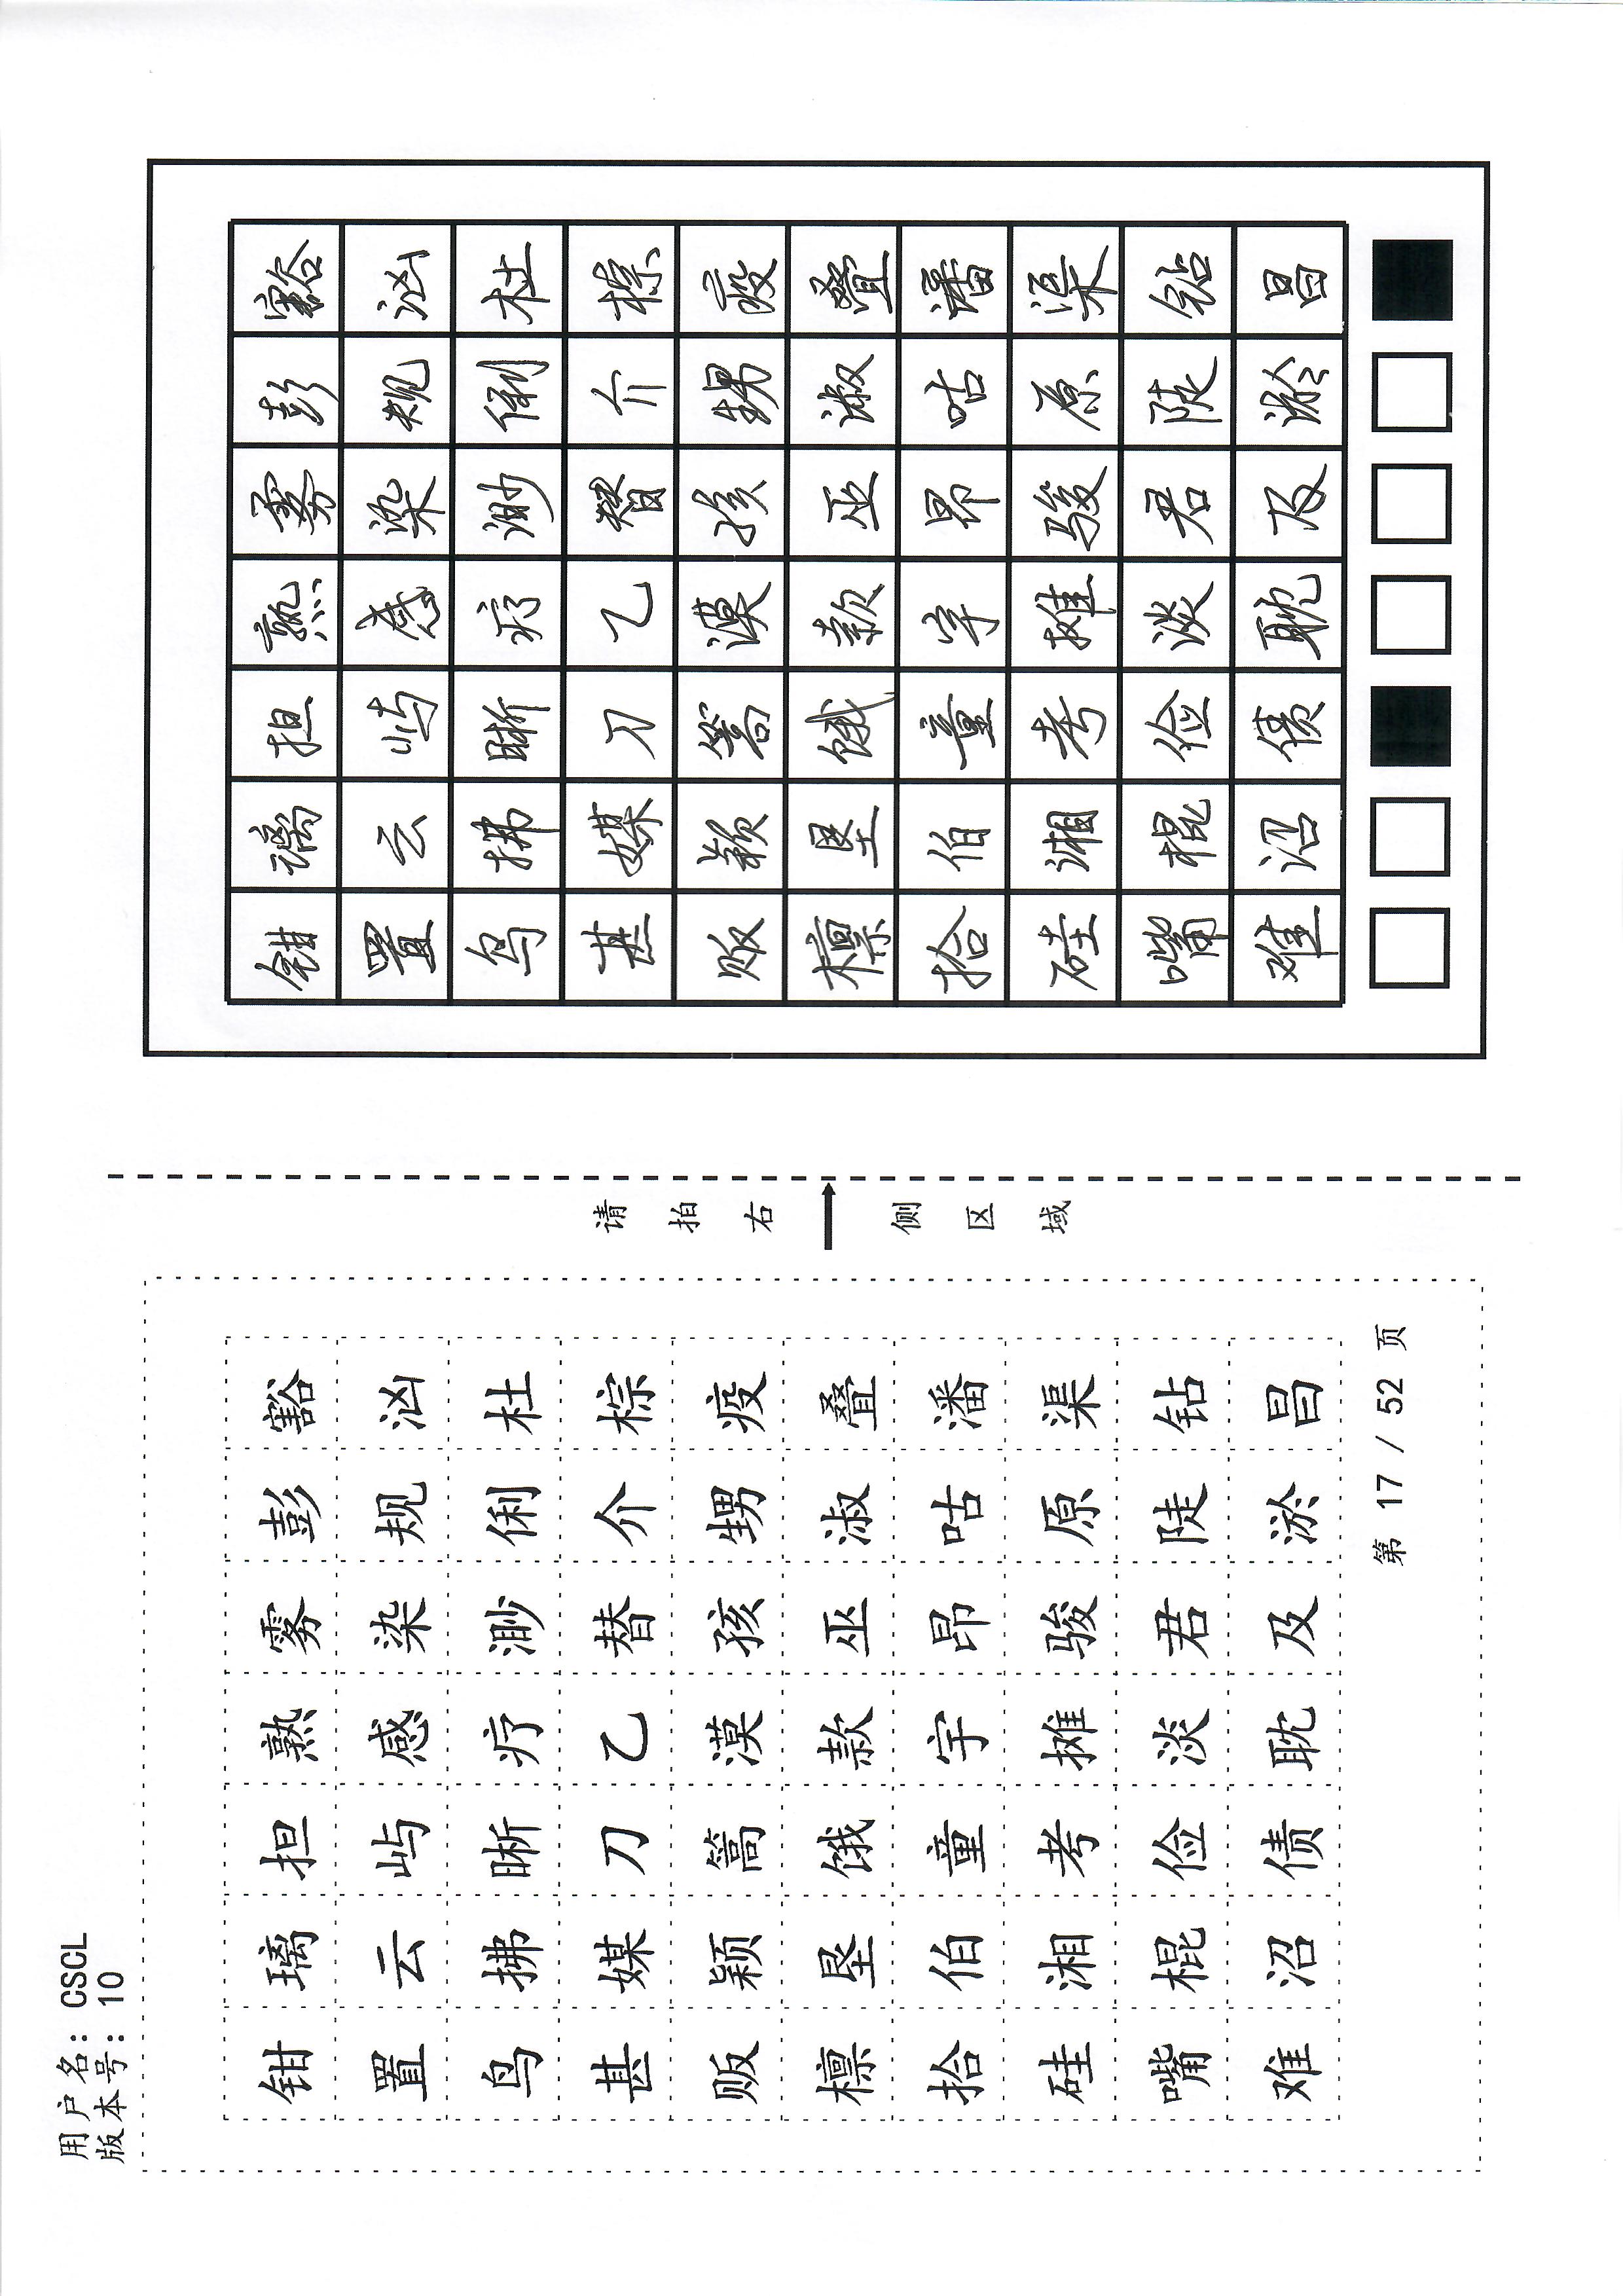 用户名: CSCL
版本号: 10
钳 璃 担 熟 雾 彭 豁
置 云 屿 感 染 规 汹
鸟 拂 晰 疗 渺 俐 杜
甚 媒 刀 乙 替 介 棕
贩 颖 篙 漠 孩 甥 疫
檩 垦 饿 款 巫 淑 叠
拾 伯 童 宇 昂 咕 潘
硅 湘 考 摊 骏 原 渠
嘴 棍 俭 淡 君 陡 钻
难 沼 债 耽 及 淤 昌
第 17 / 52 页
请拍右侧区域
钳 璃 担 熟 雾 彭 豁
置 云 屿 感 染 规 汹
鸟 拂 晰 疗 渺 俐 杜
甚 媒 刀 乙 替 介 棕
贩 颖 篙 漠 孩 甥 疫
檩 垦 饿 款 巫 淑 叠
拾 伯 童 宇 昂 咕 潘
硅 湘 考 摊 骏 原 渠
嘴 棍 俭 淡 君 陡 钻
难 沼 债 耽 及 淤 昌